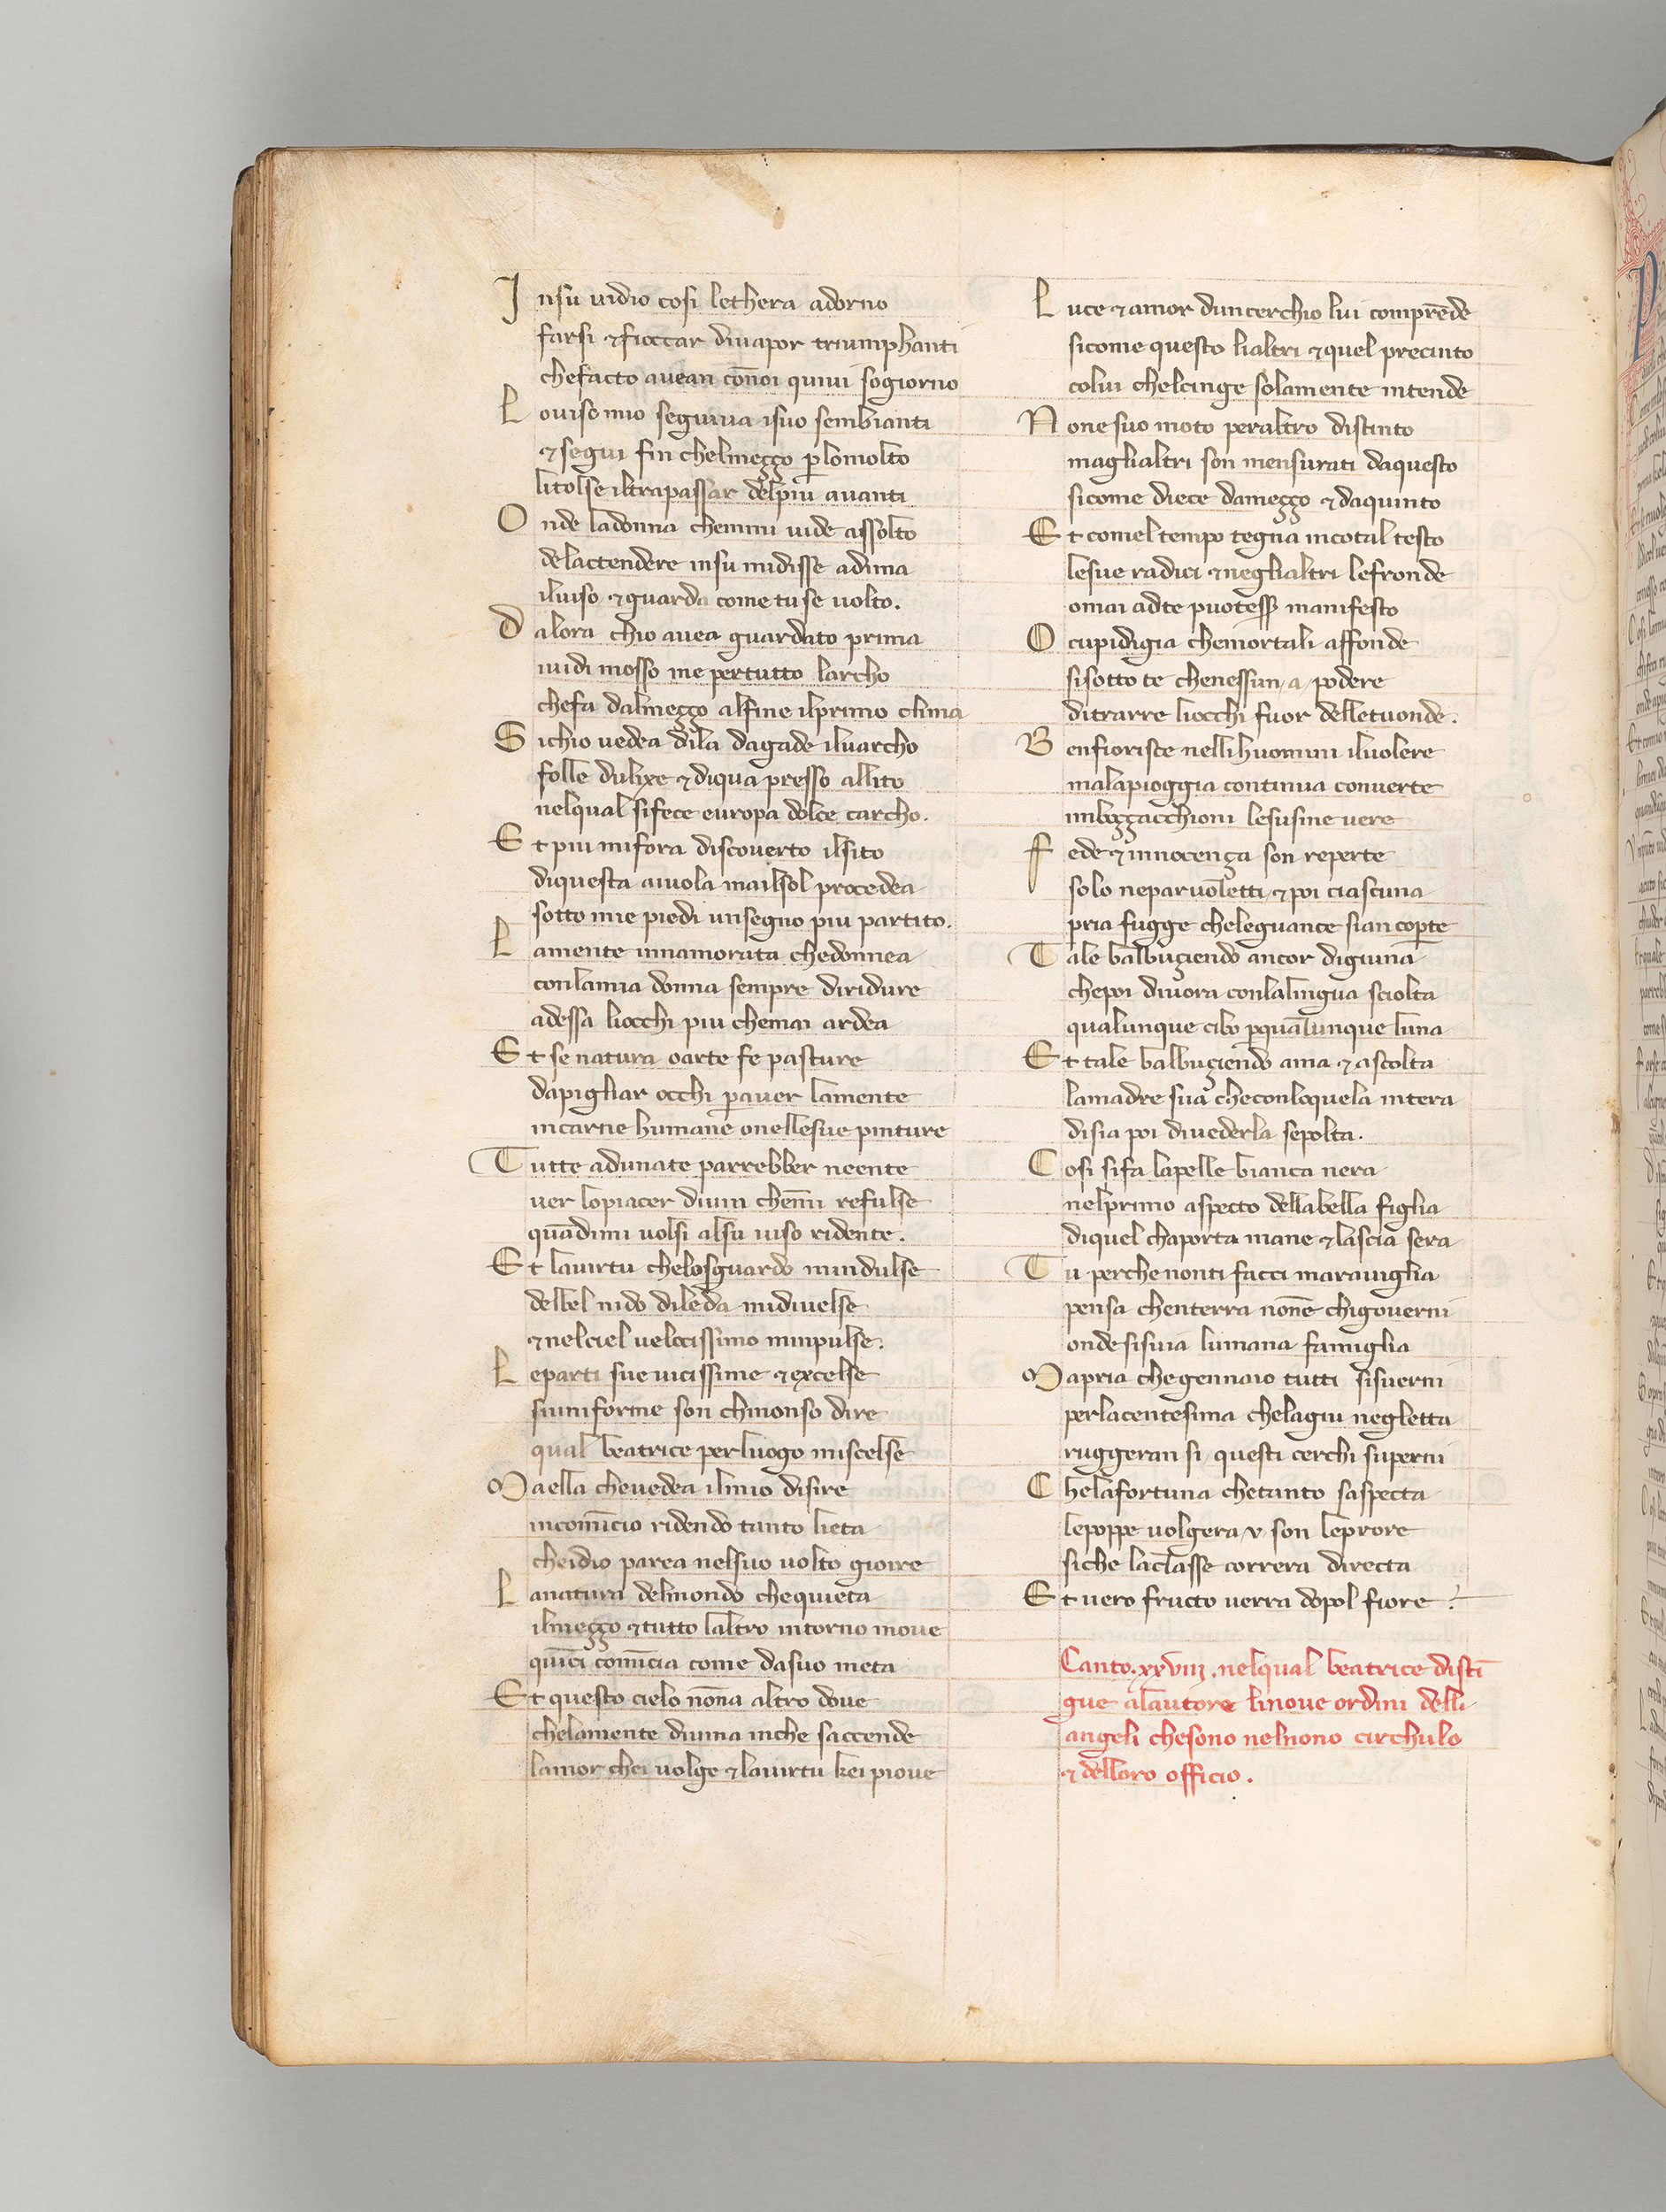 I nsu uidio cosi lethera adorno
farsi ⁊ fioccar diuapor triumphanti
chefacto auean cōnoi quiui sogiorno
L ouiso mio seguiua isuo sembianti
⁊ segui fin chelmeçço ꝑlomolto
litolse iltrapassar delpiu auanti
O nde ladonna chemmi uide assolto
delactendere insu midisse adima
iluiso ⁊ guarda come tuse uolto.
D alora chio auea guardato prima
uidi mosso me pertutto larcho
chefa dalmeçço alfine ilprimo clima
S ichio uedea dila dagade iluarcho
folle dulixe ⁊ diqua presso allito
nelqual sifece europa dolce carcho.
E t piu mifora discouerto ilsito
diquesta aiuola mailsol procedea
sotto mie piedi unsegno piu partito.
L amente innamorata chedonnea
conlamia donna sempre diridure
adessa liocchi piu chemai ardea
E t se natura oarte fe pasture
dapigliar occhi ꝑauer lamente
incarne humane onellesue pinture
T utte adunate parrebber neente
uer lopiacer diuin chem̄i refulse
quādimi uolsi alsu uiso ridente.
E t lauirtu chelosguardo mindulse
delbel nido dileda midiuelse
⁊ nelciel uelocissimo mimpulse.
L eparti sue uicissime ⁊ excelse
siuniforme son chinonso dire
qual beatrice perluogo miscelse
M aella cheuedea ilmio disire
incomīcio ridendo tanto lieta
cheidio parea nelsuo uolto gioire
L anatura delmondo chequieta
ilmeçço ⁊ tutto laltro intorno moue
quīci comīcia come dasuo meta
E t questo cielo nōna altro doue
chelamente diuina inche saccende
lamor chei uolge ⁊ lauirtu kei pioue
L uce ⁊ amor duncerchio lui comprēde
sicome questo lialtri ⁊ quel precinto
colui chelcinge solamente intende
N one suo moto peraltro distinto
maglialtri son mensurati daquesto
sicome diece dameçço ⁊ daquinto
E t comel tempo tegna incotal testo
lesue radici ⁊ neglialtri lefronde
omai adte puotesser manifesto
O cupidigia chemortali affonde
sisotto te chenessun / a / podere
ditrarre liocchi fuor delletuonde.
B enfiorisce nellihuomini iluolere
malapioggia continua conuerte
imboççacchioni lesusine uere
F ede ⁊ innocença son reperte
solo neparuoletti ⁊ poi ciascuna
pria fugge cheleguance sian coꝑte
T ale balbuçiendo ancor digiuna
chepoi diuora conlalingua sciolta
qualunque cibo ꝑqualunque luna
E t tale balbuçiendo ama ⁊ ascolta
lamadre sua checonloquela intera
disia poi diuederla sepolta.
C osi sifa lapelle bianca nera
nelprimo aspecto dellabella figlia
diquel chaporta mane ⁊ lascia sera
T u perche nonti facci marauiglia
pensa chenterra nonē chigouerni
onde sisuia lumana famiglia
M apria chegennaio tutti sisuerni
perlacentesima chelagiu negletta
ruggeran si questi cerchi superni
C helafortuna chetanto saspecta
lepoppe uolgera / v son leprore
siche laclasse correra directa
E t uero fructo uerra dopol fiore .
Canto .xxviij. nelqual beatrice distī
gue alautore linoue ordini delli
angeli chesono nelnono circhulo
⁊ delloro officio .